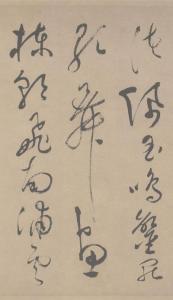 渚佩玉鳴鸞罷
歌舞畫
棟朝飛南浦雲